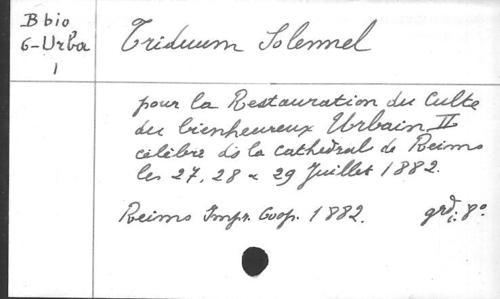 B bio
6-Urba
1
Triduum Solennel
pour la Restauration du Culte
du bienheureux Urbain II
célébré ds la cathédrale de Reims
les 27, 28 & 29 Juillet 1882.
Reims Impr. Coop. 1882. grd i. 8°